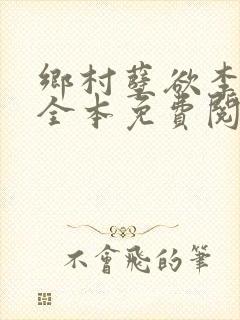 鄉村孽欲李
全本免費閱
不會飛的筆